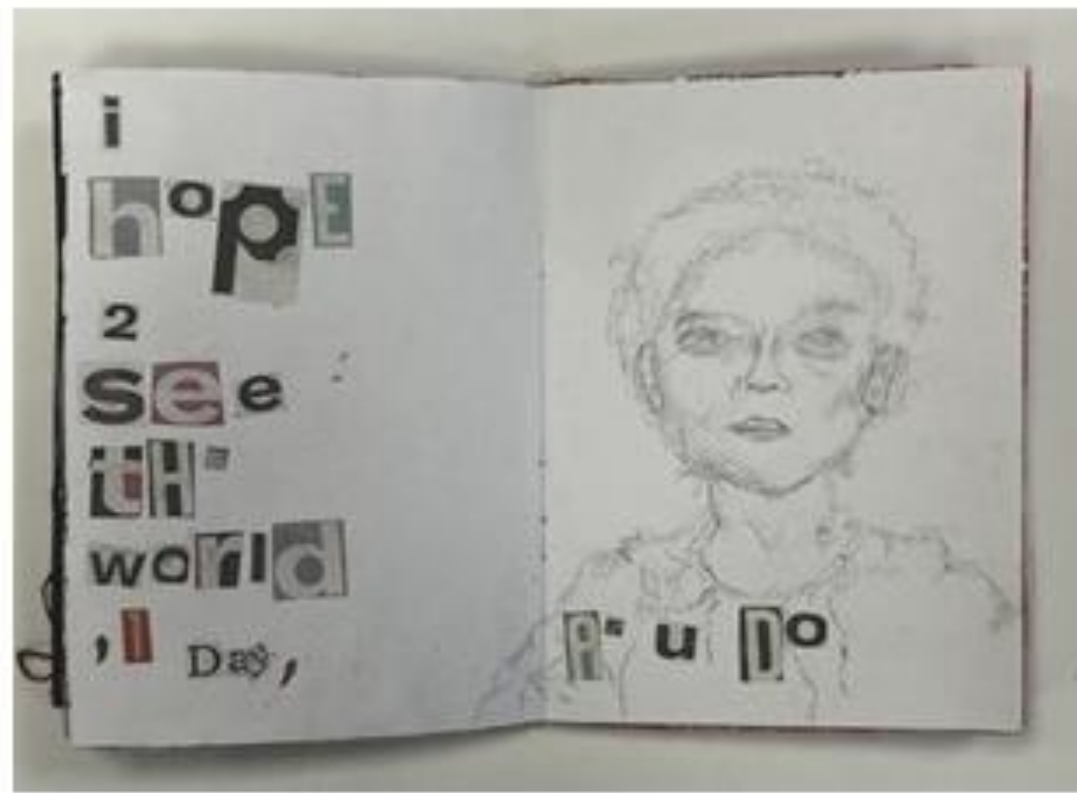 i
hopE
2
see
tH"
world
,1 Day,
A" u Do